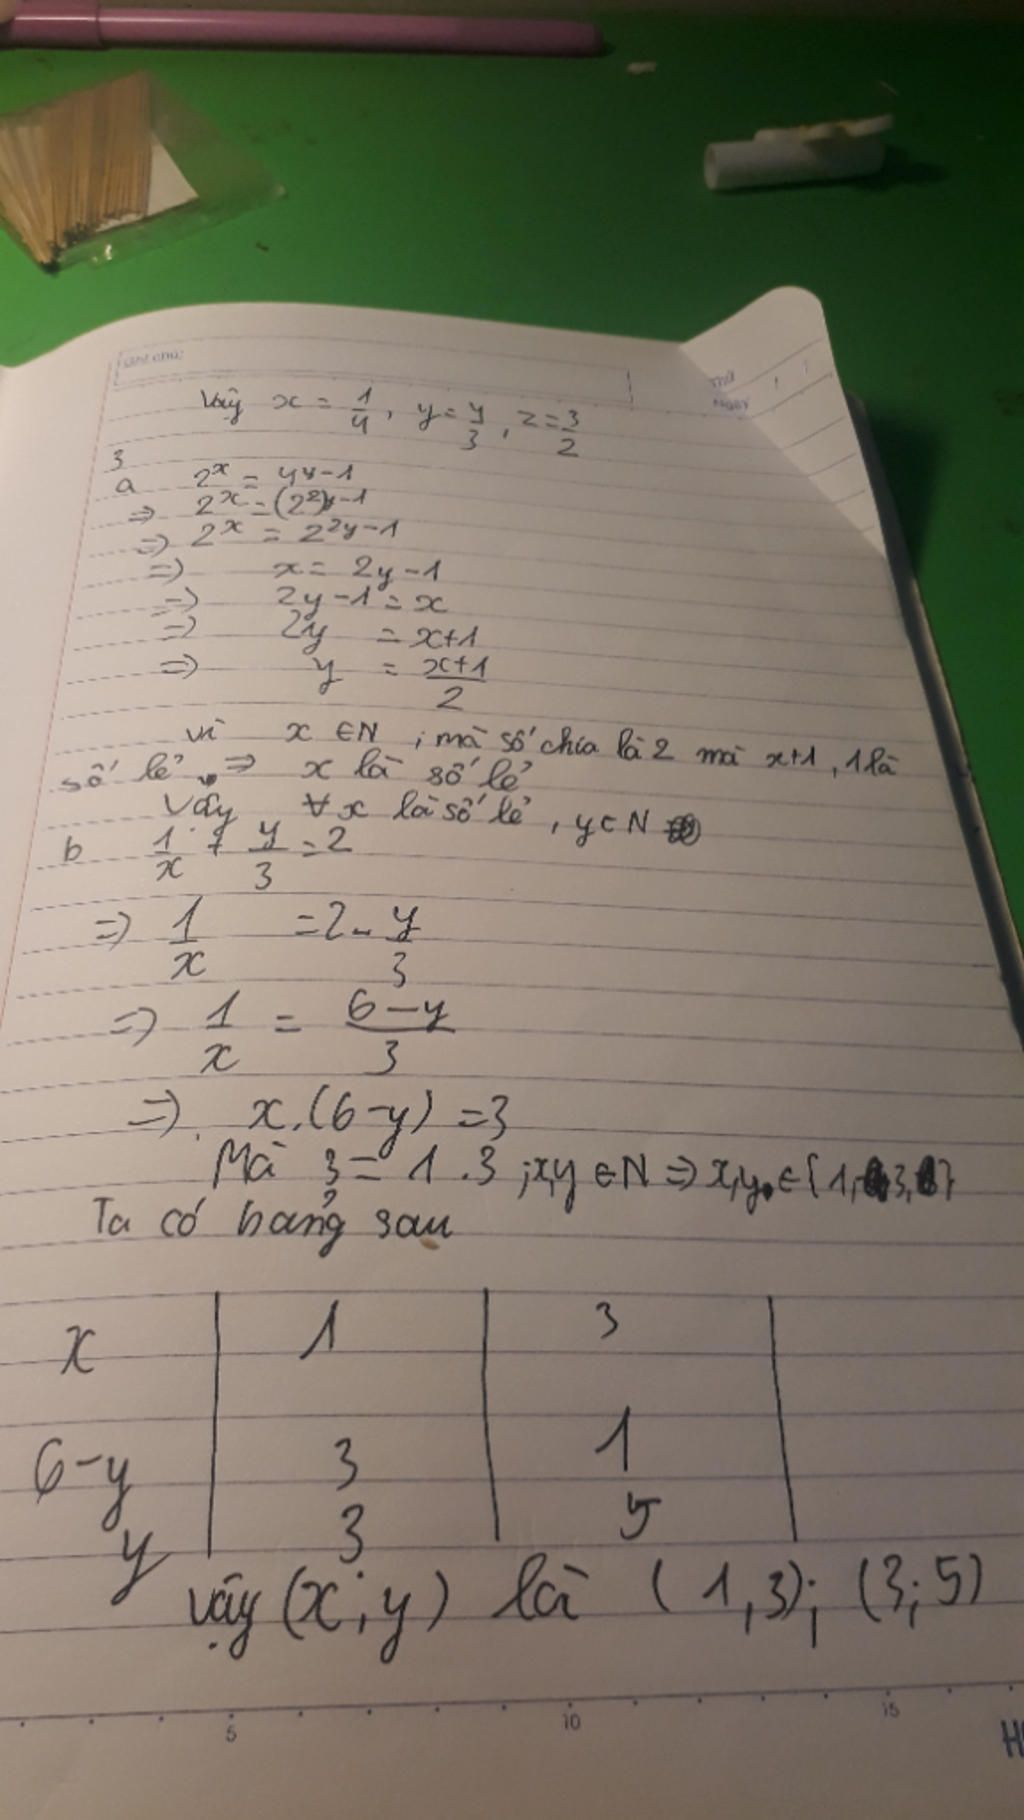 Ghi chú:
Thứ
Ngày / /
Vậy x = 1/4, y = 4/3, z = 3/2
3
a 2^x = 4^y-1
=> 2^x = (2^2)^y-1
=> 2^x = 2^2y-1
=> x = 2y-1
=> 2y-1 = x
=> 2y = x+1
=> y = x+1/2
vì x ∈ N, mà số chia là 2 mà x+1, 1 là
số lẻ => x là số lẻ
Vậy ∀ x là số lẻ, y ∈ N
b 1/x + y/3 = 2
=> 1/x = 2 - y/3
=> 1/x = 6-y/3
=> x.(6-y) = 3
Mà 3 = 1.3; x,y ∈ N => x,y ∈ {1, 3, }
Ta có bảng sau
x 1 3
6-y 3 1
y 3 5
Vậy (x;y) là (1,3); (3;5)
5 10 15